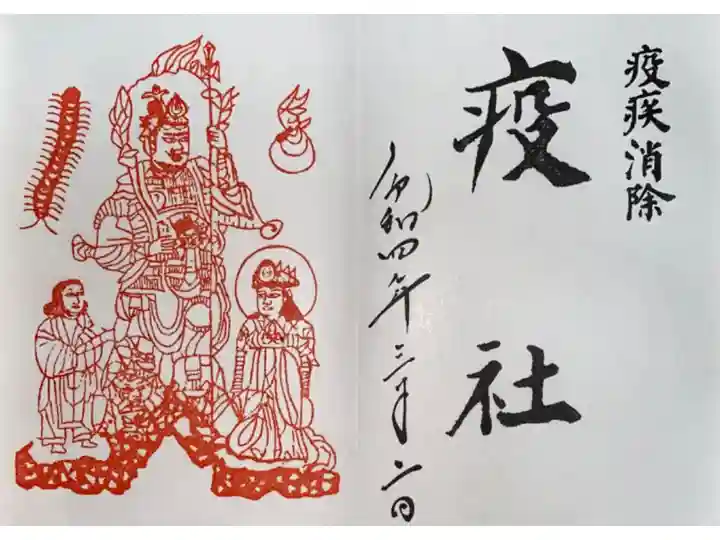 疫疾消除
疫社
令和四年三月二日